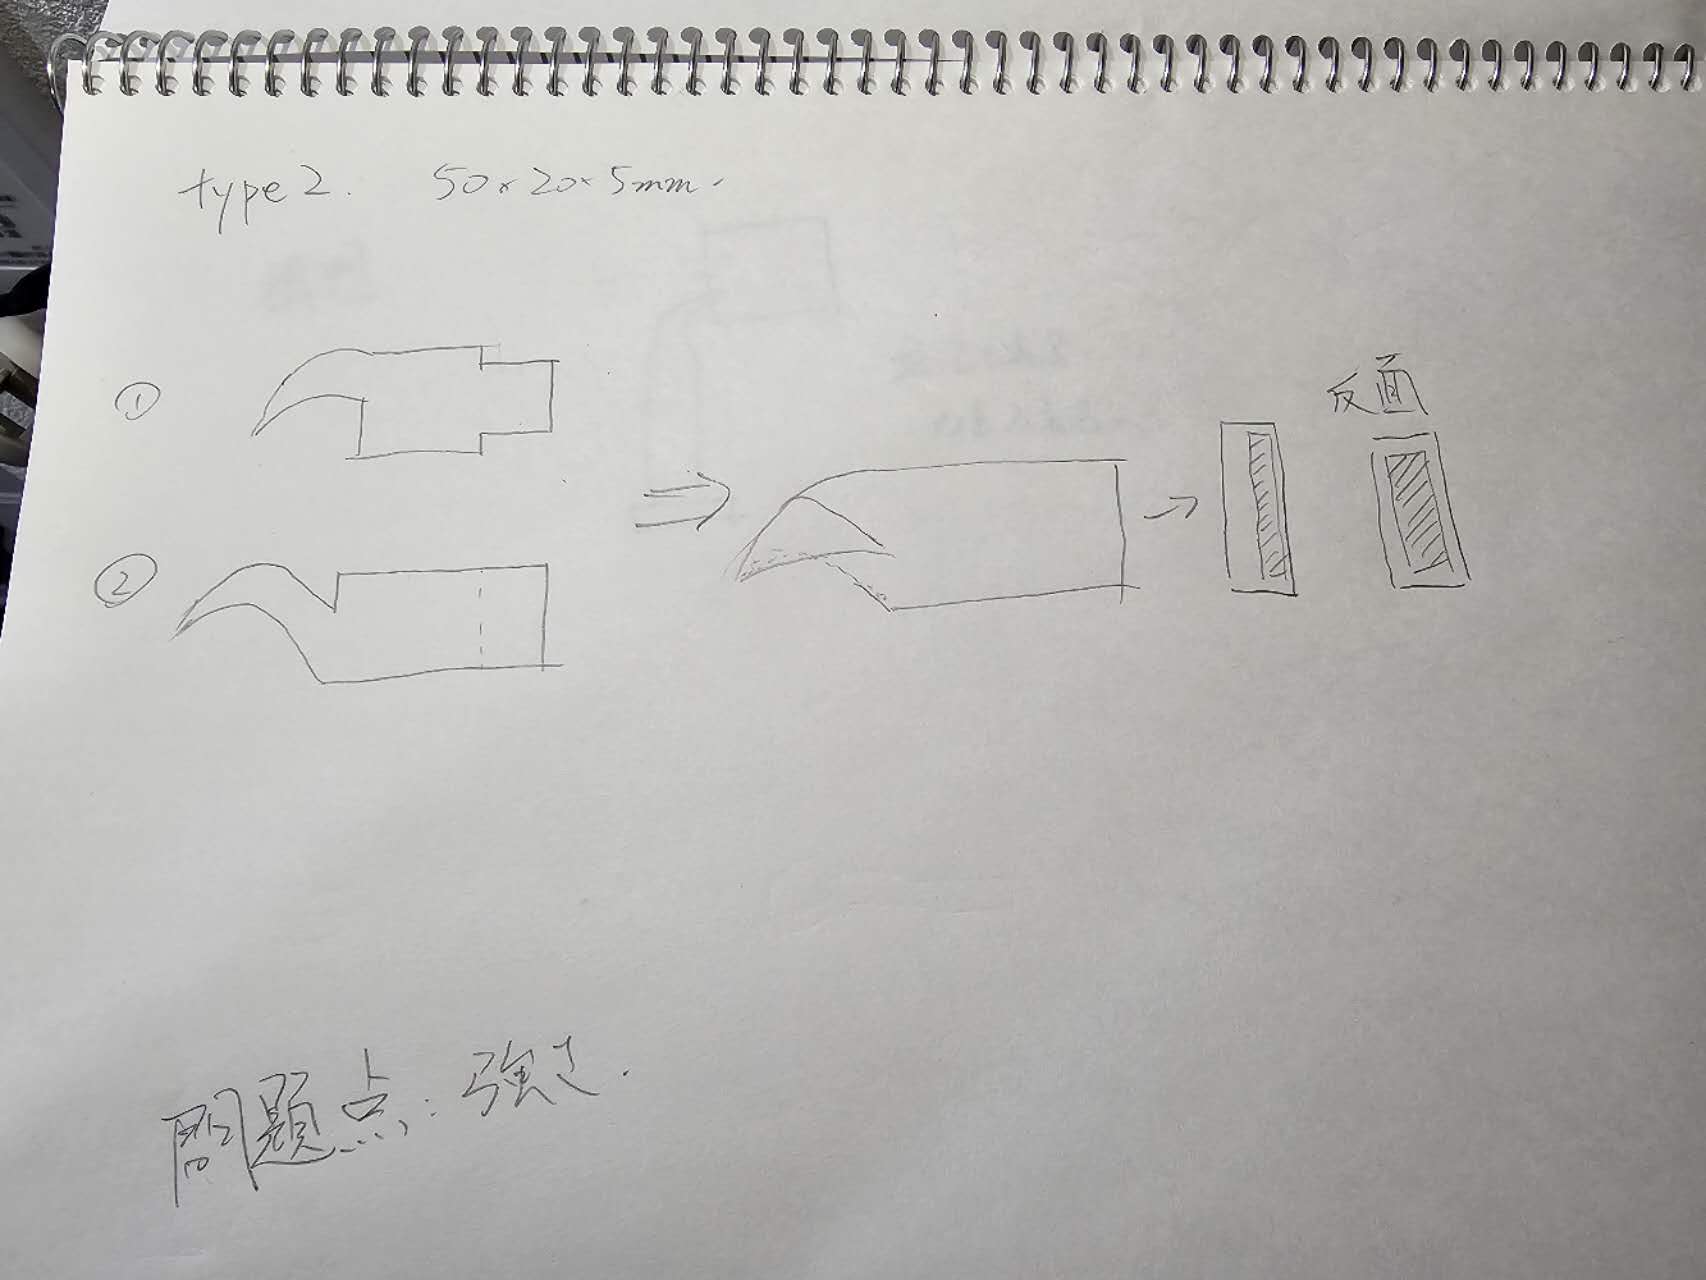 type 2. 50×20×5mm.
①
反面
②
問題点:強さ.